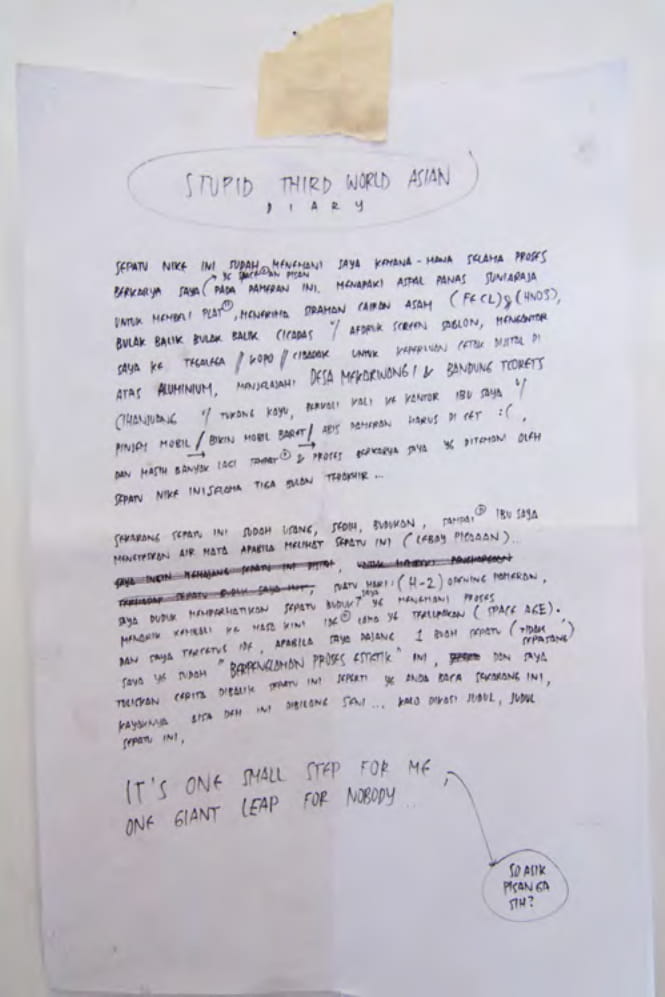 STUPID THIRD WORLD ASIAN
DIARY
SEPATU NIKE INI SUDAH MENEMANI SAYA KEMANA-MANA SELAMA PROSES
BERKARYA SAYA (PADA PAMERAN INI. MENAPAKI ASPAL PANAS SUNIARAJA
UNTUK MEMBELI PLAT², MENERIMA SIRAMAN CAIRAN ASAM (FECL) & (HNO3),
BULAK BALIK BULAK BALIK CICADAS U/ AFDRUK SCREEN SABLON, MENGANTOR
SAYA KE TEGALEGA / KOPO / CIBADAK UNTUK KEPERLUAN CETAK DIGITAL DI
ATAS ALUMINIUM, MENJELAJAHI DESA MEKARWANGI & BANDUNG TCORETS
CIHANJUANG U/ TUKANG KAYU, BERKALI KALI KE KANTOR IBU SAYA U/
PINJEM MOBIL / BIKIN MOBIL BARET / ABIS PAMERAN HARUS DI CET :(,
DAN MASIH BANYAK LAGI TEMPAT² & PROSES BERKARYA SAYA YG DITEMANI OLEH
SEPATU NIKE INI SELAMA TIGA BULAN TERAKHIR...
SEKARANG SEPATU INI SUDAH USANG, SEDIH, BUDUKAN, SAMPAI² IBU SAYA
MENETESKAN AIR MATA APABILA MELIHAT SEPATU INI (LEBAY PISAAAN)...
SUATU HARI: (H-2) OPENING PAMERAN,
SAYA DUDUK MEMPERHATIKAN SEPATU BUDUK² SAYA YG MENEMANI PROSES
MENARIK KEMBALI KE MASA KINI IDE² LAMA YG TERLUPAKAN (SPACE AGE).
DAN SAYA TERCETUS IDE, APABILA SAYA PAJANG 1 BUAH SEPATU (TIDAK SEPASANG)
SAYA YG SUDAH "BERPENGALAMAN PROSES ESTETIK" INI, DAN SAYA
TULISKAN CERITA DIBALIK SEPATU INI SEPERTI YG ANDA BACA SEKARANG INI,
KAYAKNYA BISA DEH INI DIBILANG SENI... KALO DIKASI JUDUL, JUDUL
SEPATU INI,
IT'S ONE SMALL STEP FOR ME,
ONE GIANT LEAP FOR NOBODY...
SO ASIK
PISAN GA
SIH?